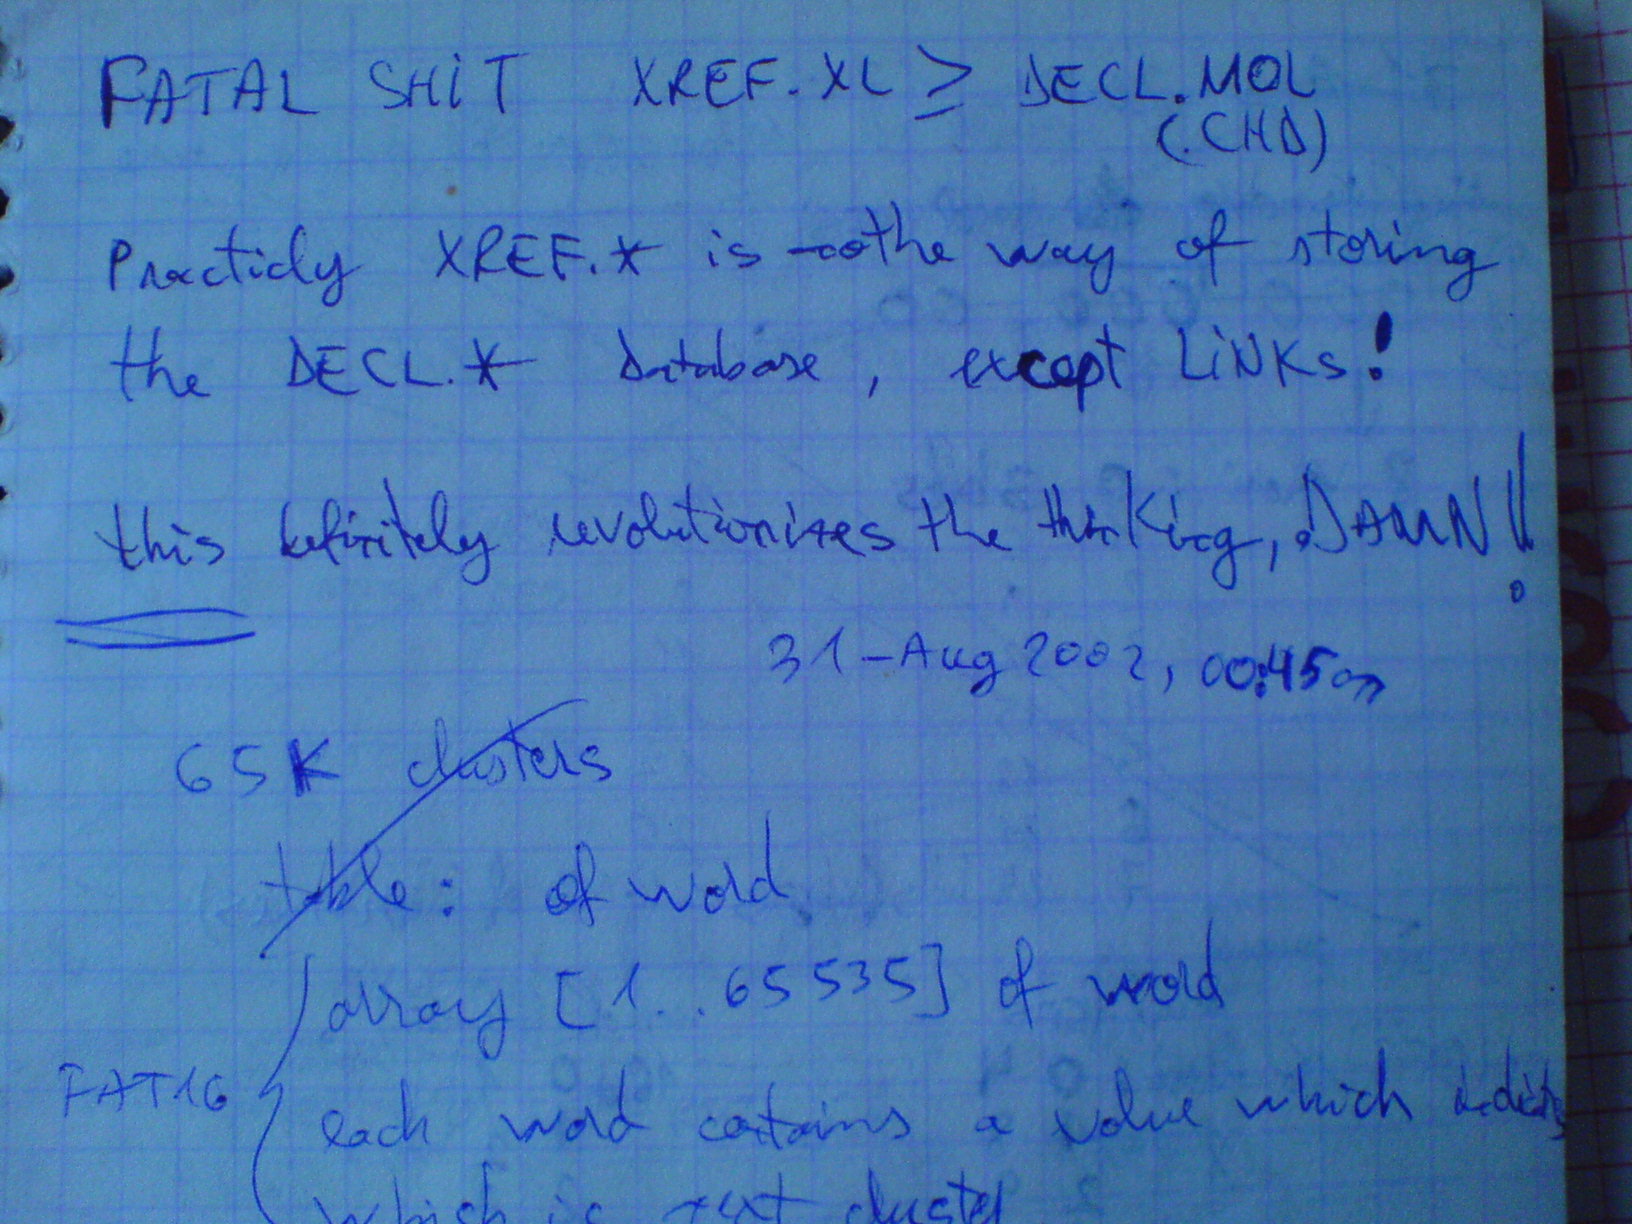 FATAL SHIT XREF.XL ≥ DECL.MOL
(.CHD)
Practicly XREF.* is the way of storing
the DECL.* database, except LINKs!
this definitely revolutionizes the thinking, DAMN!!
31-Aug 2002, 00:45am
65K clusters
table: of word
array [1..65535] of word
FAT16
each word contains a value which indicates
which is next cluster